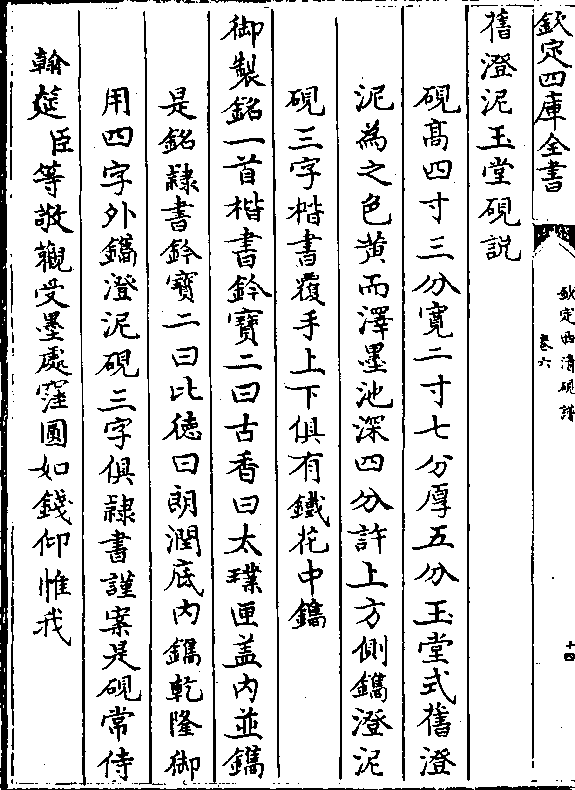 欽定四庫全書
欽定西清硯譜
卷六
十四
舊澄泥玉堂硯說
硯髙四寸三分寛二寸七分厚五分玉堂式舊澄
泥為之色黄而澤墨池深四分許上方側鐫澄泥
硯三字楷書覆手上下俱有鐵花中鐫
御製銘一首楷書鈐寶二曰古香曰太璞匣盖内並鐫
是銘隸書鈐寶二曰比徳曰朗潤底内鐫乾隆御
用四字外鐫澄泥硯三字俱隸書謹案是硯常侍
翰筵臣等敬觀受墨處窪圓如錢仰惟我